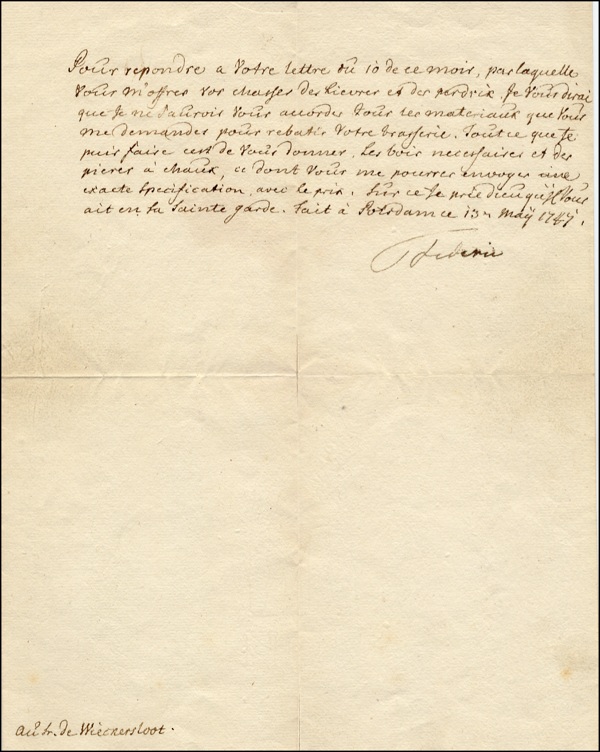 Pour repondre a Votre lettre du 10 de ce mois, par laquelle
Vous m'offres vos chasses des lievres et des perdrix, Je Vous dirai
que Je ne saurois Vous accorder tous les materiaux que Vous
me demandes pour rebatir Votre brasserie. Tout ce que Je
puis faire c'est de Vous donner, les bois necessaires et des
pieres à chaux, ce dont Vous me pourres envoyer une
exacte specification, avec le prix. Sur ce Je prie Dieu qu'il Vous
ait en sa sainte garde. fait à Potsdam ce 13 May 1747.
Federic
au Sr. de Wiecnersloot.